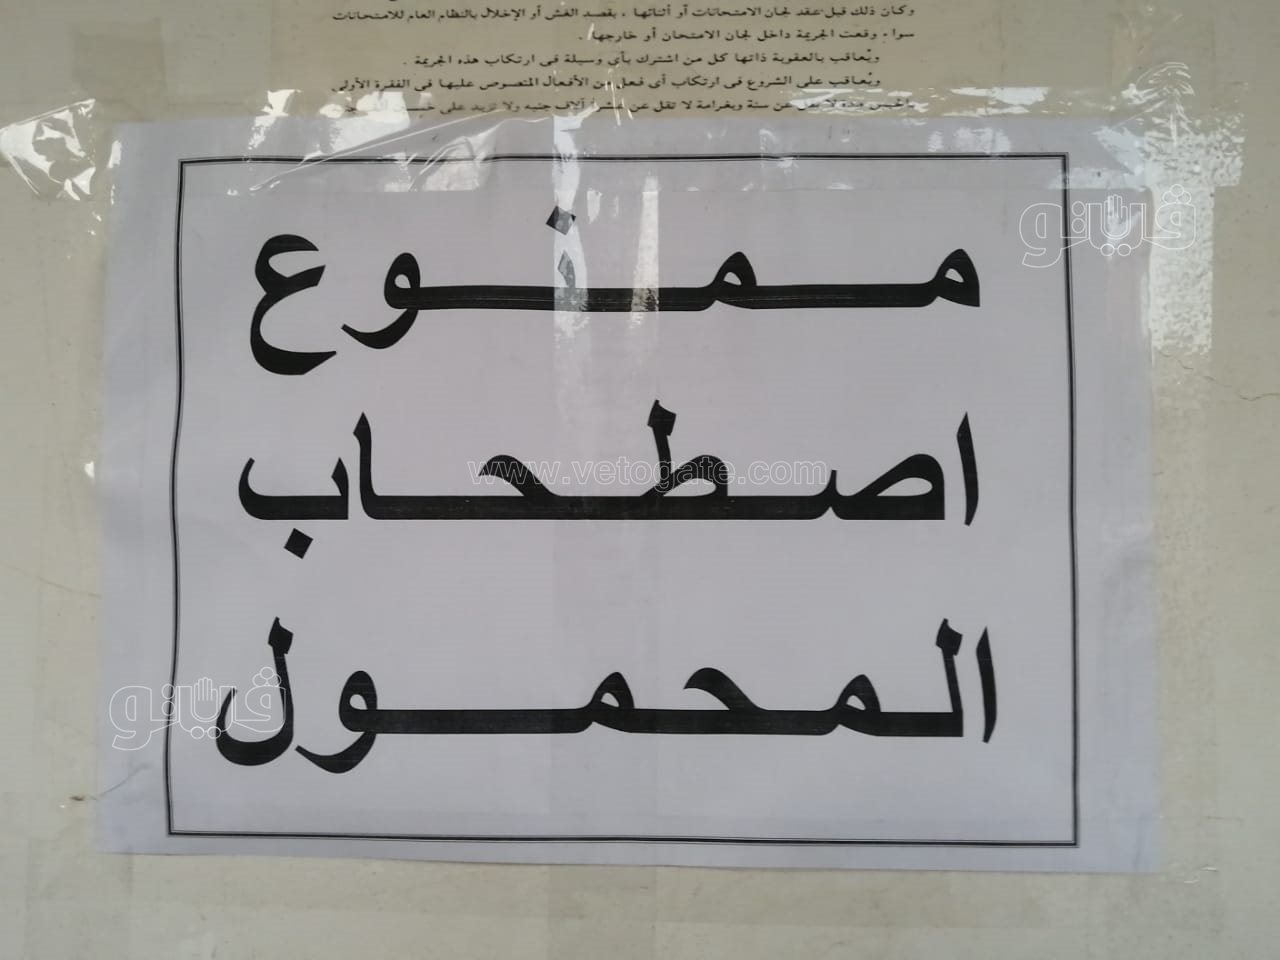 وكان ذلك قبل عقد لجان الامتحانات أو أثنائها ، بقصد الغش أو الإخلال بالنظام العام للامتحانات
سواء وقعت الجريمة داخل لجان الامتحان أو خارجها .
ويُعاقب بالعقوبة ذاتها كل من اشترك بأى وسيلة فى ارتكاب هذه الجريمة .
ويُعاقب على الشروع فى ارتكاب أى فعل من الأفعال المنصوص عليها فى الفقرة الأولى
بالحبس مدة لا تقل عن سنة وبغرامة لا تقل عن عشرة آلاف جنيه ولا تزيد على
ڤيتو
ممنوع
اصطحاب
www.vetogate.com
المحمول
ڤيتو